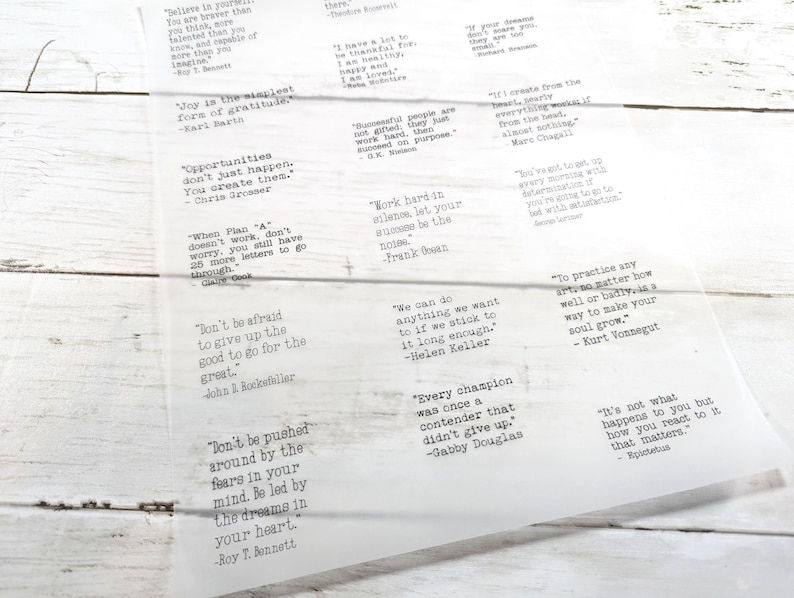 "Believe in yourself.
You are braver than
you think, more
talented than you
know, and capable of
more than you
imagine."
-Roy T. Bennett
"Joy is the simplest
form of gratitude."
-Karl Barth
"Opportunities
don't just happen.
You create them."
- Chris Grosser
"When Plan "A"
doesn't work, don't
worry, you still have
25 more letters to go
through."
- Claire Cook
"Don't be afraid
to give up the
good to go for the
great."
-John D. Rockefeller
"Don't be pushed
around by the
fears in your
mind. Be led by
the dreams in
your heart."
-Roy T. Bennett
there."
-Theodore Roosevelt
"I have a lot to
be thankful for.
I am healthy,
happy and
I am loved."
-Reba McEntire
"Successful people are
not gifted; they just
work hard, then
succeed on purpose."
- G.K. Nielson
"Work hard in
silence, let your
success be the
noise."
-Frank Ocean
"We can do
anything we want
to if we stick to
it long enough."
-Helen Keller
"Every champion
was once a
contender that
didn't give up."
-Gabby Douglas
"If your dreams
don't scare you,
they are too
small."
-Richard Branson
"If I create from the
heart, nearly
everything works; if
from the head,
almost nothing."
- Marc Chagall
"You've got to get up
every morning with
determination if
you're going to go to
bed with satisfaction."
-George Lorimer
"To practice any
art, no matter how
well or badly, is a
way to make your
soul grow."
- Kurt Vonnegut
"It's not what
happens to you but
how you react to it
that matters."
- Epictetus